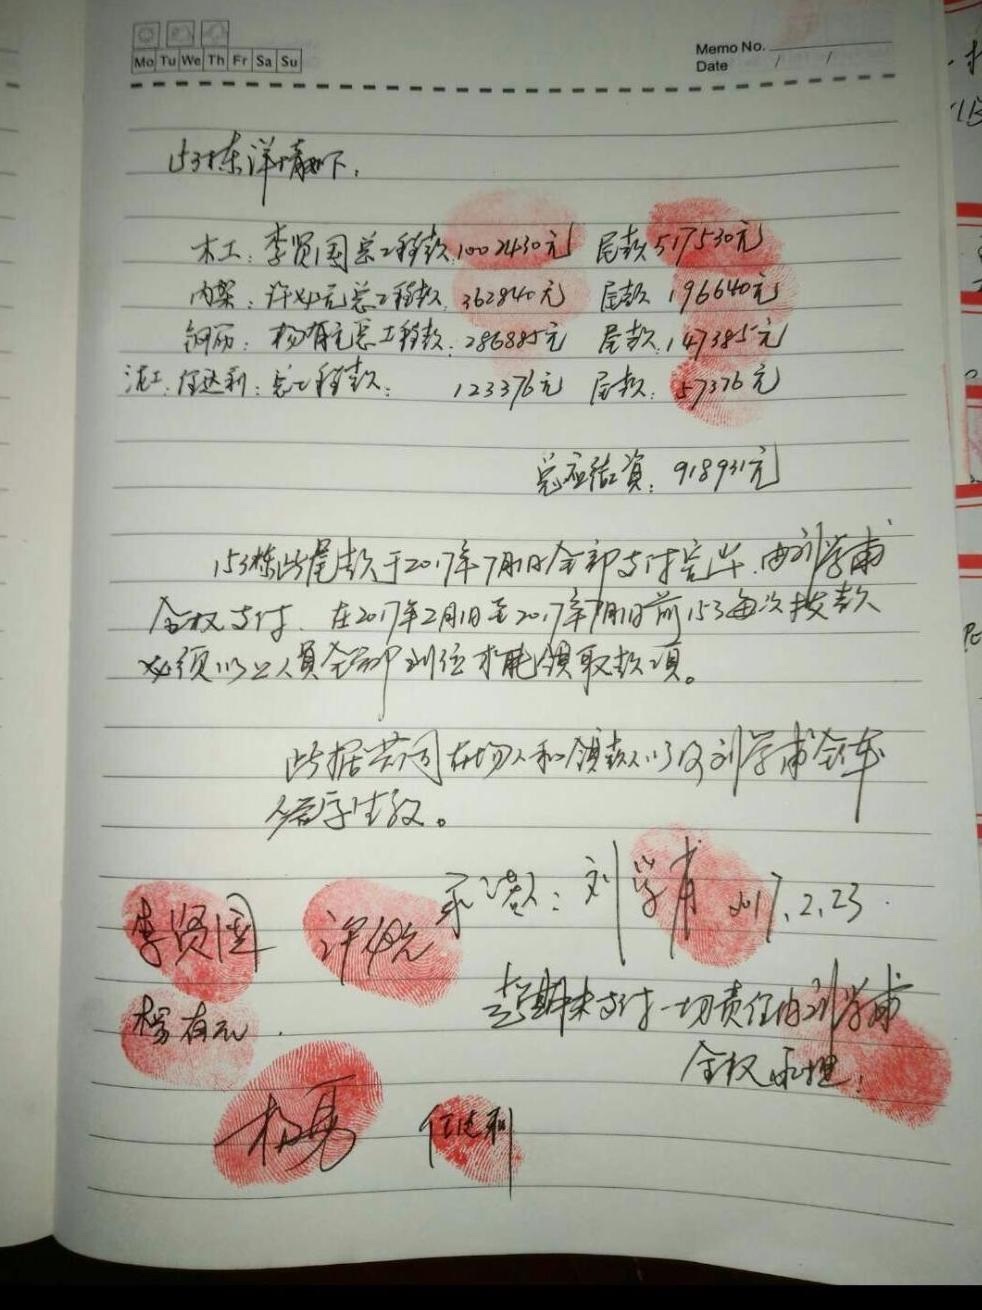 Mo Tu We Th Fr Sa Su
Memo No.
Date / /
153栋详情如下:
木工:李贤国总工程款:1002430元 尾款517530元
内架:许 元总工程款:362840元 尾款196640元
钢筋:杨有元总工程款:286885元 尾款:147385元
泥工:任达利:总工程款: 123376元 尾款:57376元
总应结资:918931元
153栋此尾款于2017年7月1日全部支付完毕.由刘学甫
全权支付.在2017年2月1日至2017年7月1日前153每次拨款
必须以上人员全部到位才能领取款项。
此据共同在场人和领款人以及刘学甫全体
签字生效。
承诺人:刘学甫 2017.2.23
李贤国 许 元
杨有元.
超期未支付一切责任由刘学甫
全权承担.
杨勇 任达利